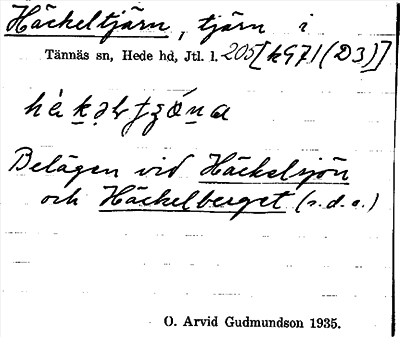 Häckeltjärn, tjärn i
Tännäs sn, Hede hd, Jtl. l. 205 [k971(D3)]
Belägen vid Häckelsjön
och Häckelberget (s.d.o.)
O. Arvid Gudmundson 1935.